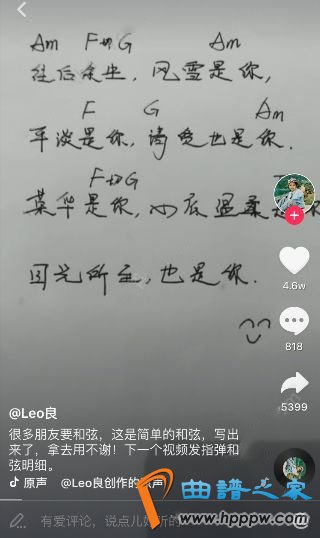 Am F切G Am
往后余生，风雪是你，
F G Am
平淡是你，清贫也是你.
F切G
荣华是你，心底温柔
目光所至，也是你.
4.6w
818
5399
@Leo良
很多朋友要和弦，这是简单的和弦，写出
来了，拿去用不谢！下一个视频发指弹和
弦明细。
原声 @Leo良创作的原声
有爱评论，说点儿好听的
曲谱之家
www.hpppw.com